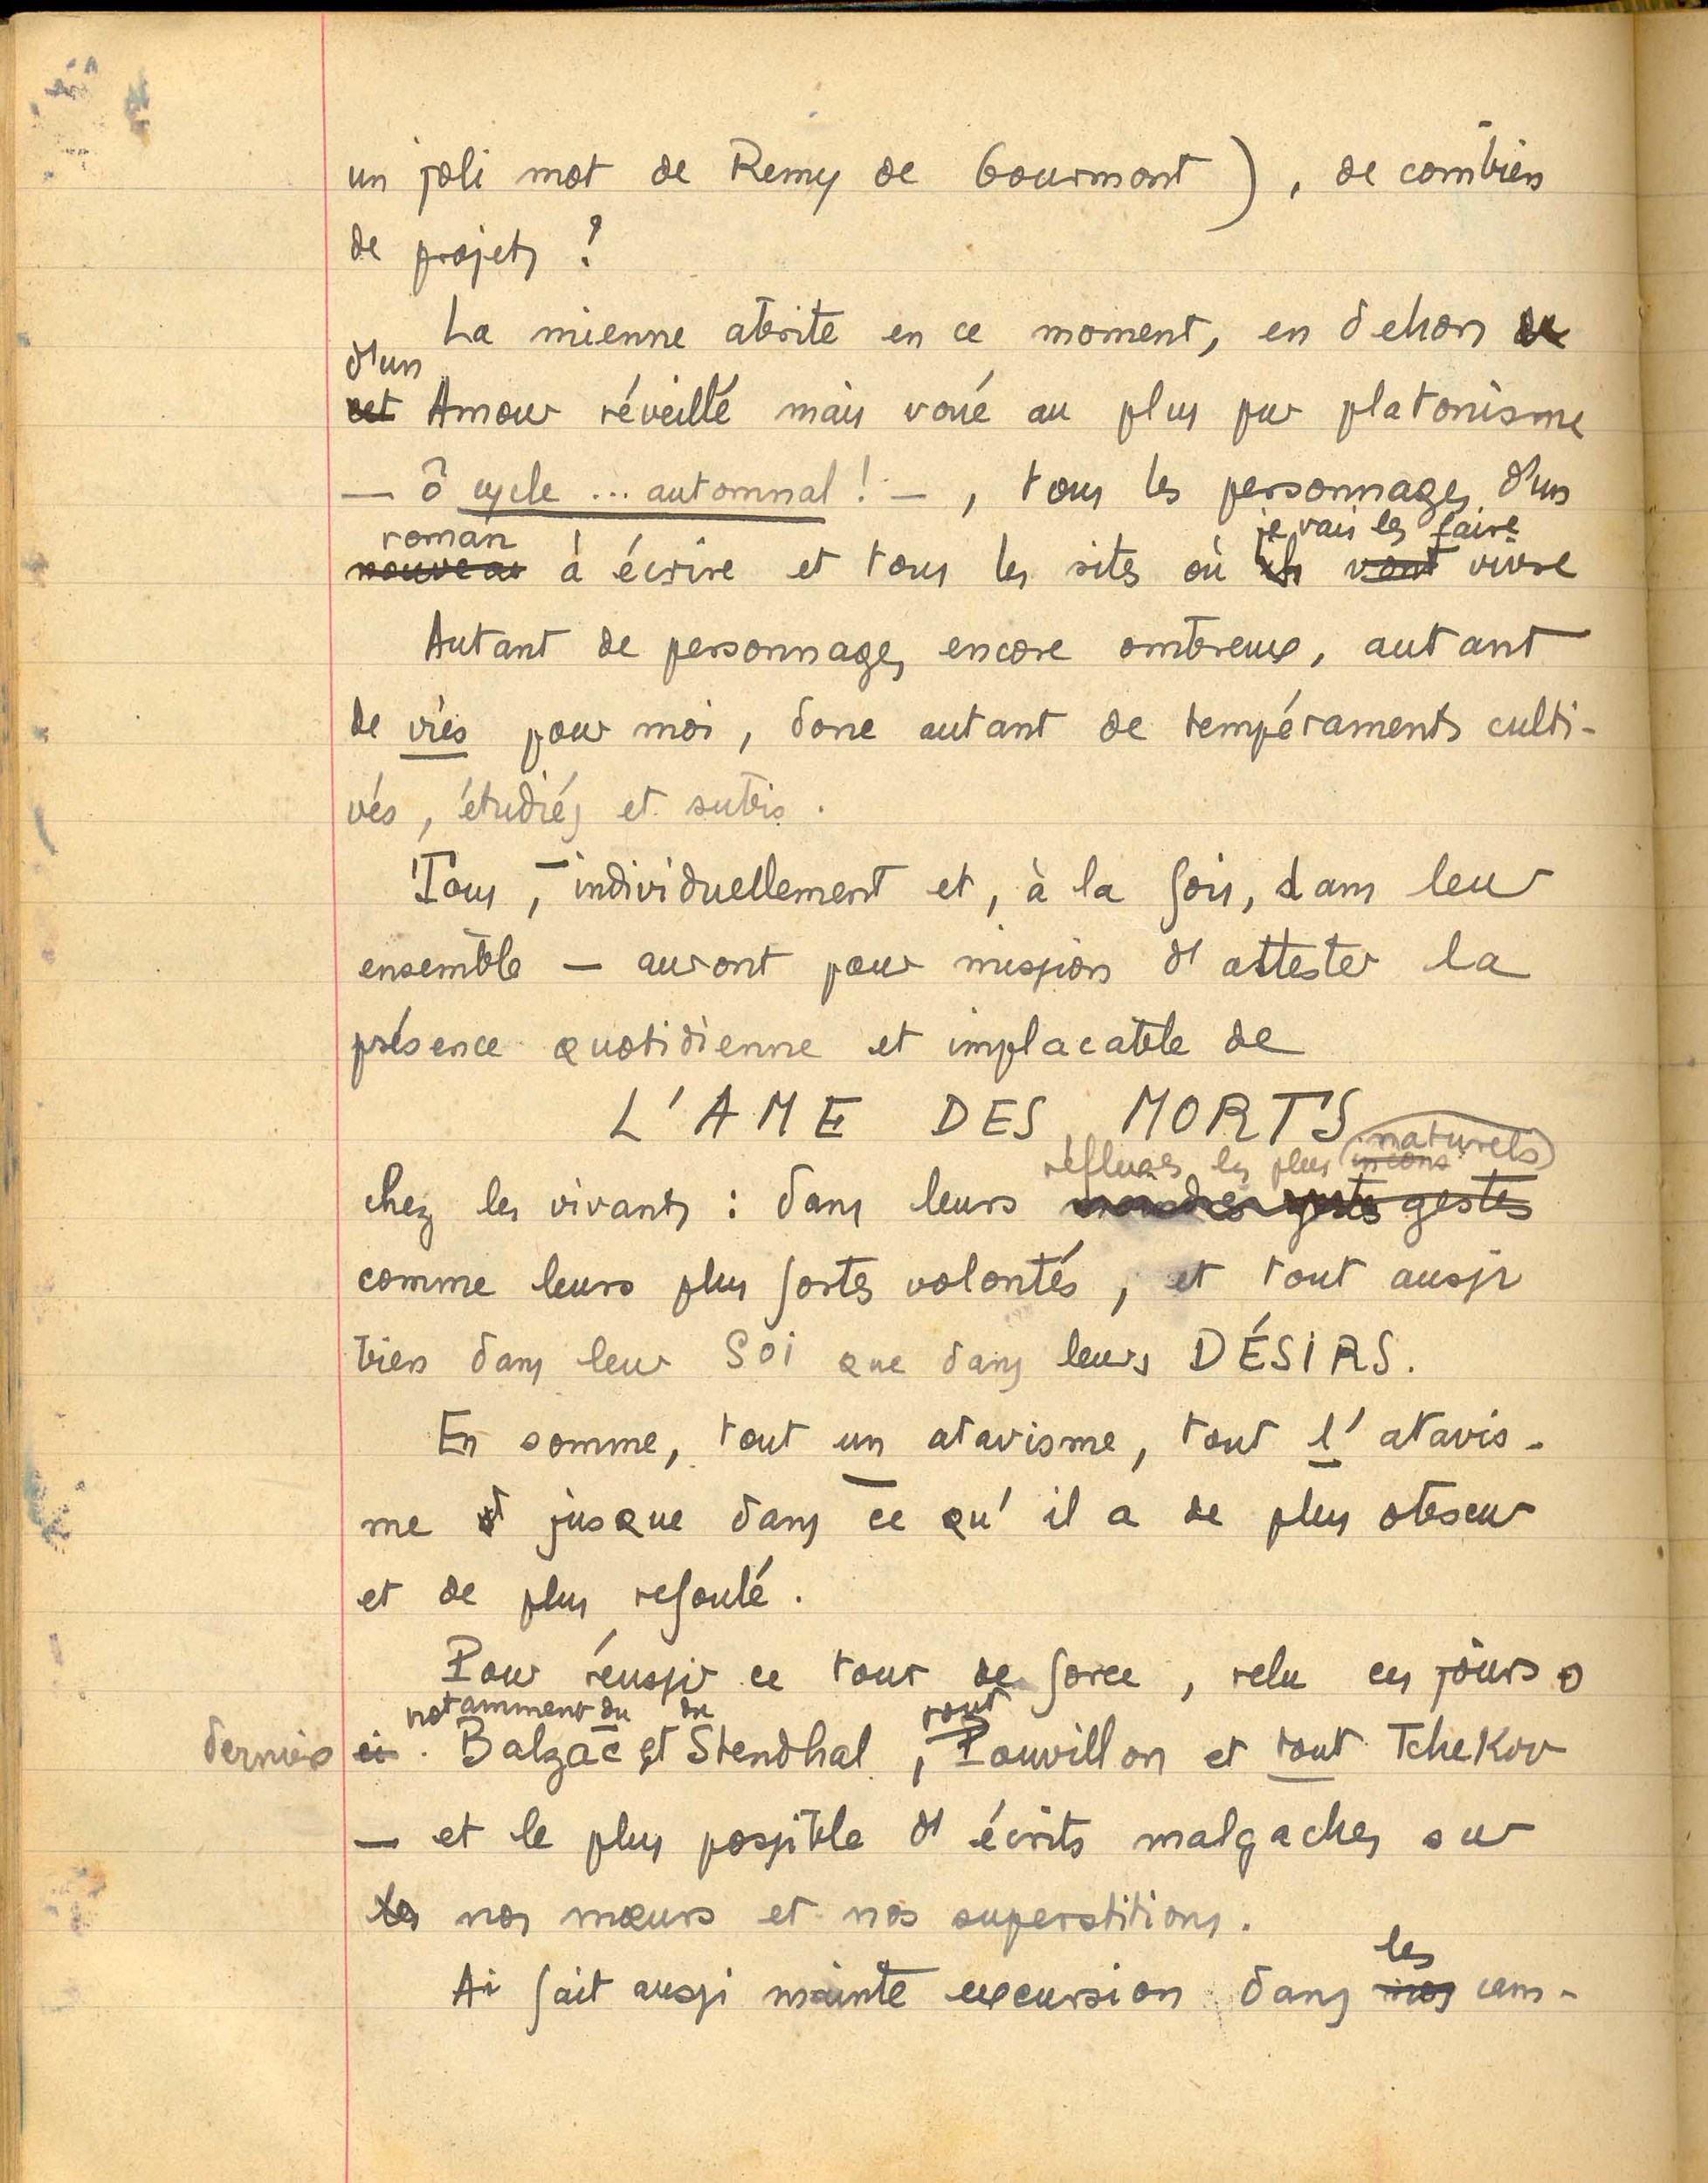 un joli mot de Remy de Gourmont), de combien
de projets ?
La mienne abrite en ce moment, en dehors de
d'un
cet Amour réveillé mais voué au plus pur platonisme
— ô cycle ... automnal ! —, tous les personnages d'un
roman je vais les faire
nouveau à écrire et tous les sites où ils vont vivre
Autant de personnages encore ombreux, autant
de vies pour moi, donc autant de tempéraments culti-
vés, étudiés et subis.
Tous, — individuellement et, à la fois, dans leur
ensemble — auront pour mission d'attester la
présence quotidienne et implacable de
L'AME DES MORTS
réflexes les plus incons naturels
chez les vivants : dans leurs moindres gestes gestes
comme leurs plus fortes volontés, et tout aussi
bien dans leur SOI que dans leurs DÉSIRS.
En somme, tout un atavisme, tout l'atavis-
me et jusque dans ce qu'il a de plus obscur
et de plus refoulé.
Pour réussir ce tour de force, relu ces jours
notamment du du tout
derniers ci. Balzac et Stendhal, Pouvillon et tout Tchekov
— et le plus possible d'écrits malgaches sur
les nos mœurs et nos superstitions.
les
Ai fait aussi mainte excursion dans nos cam-